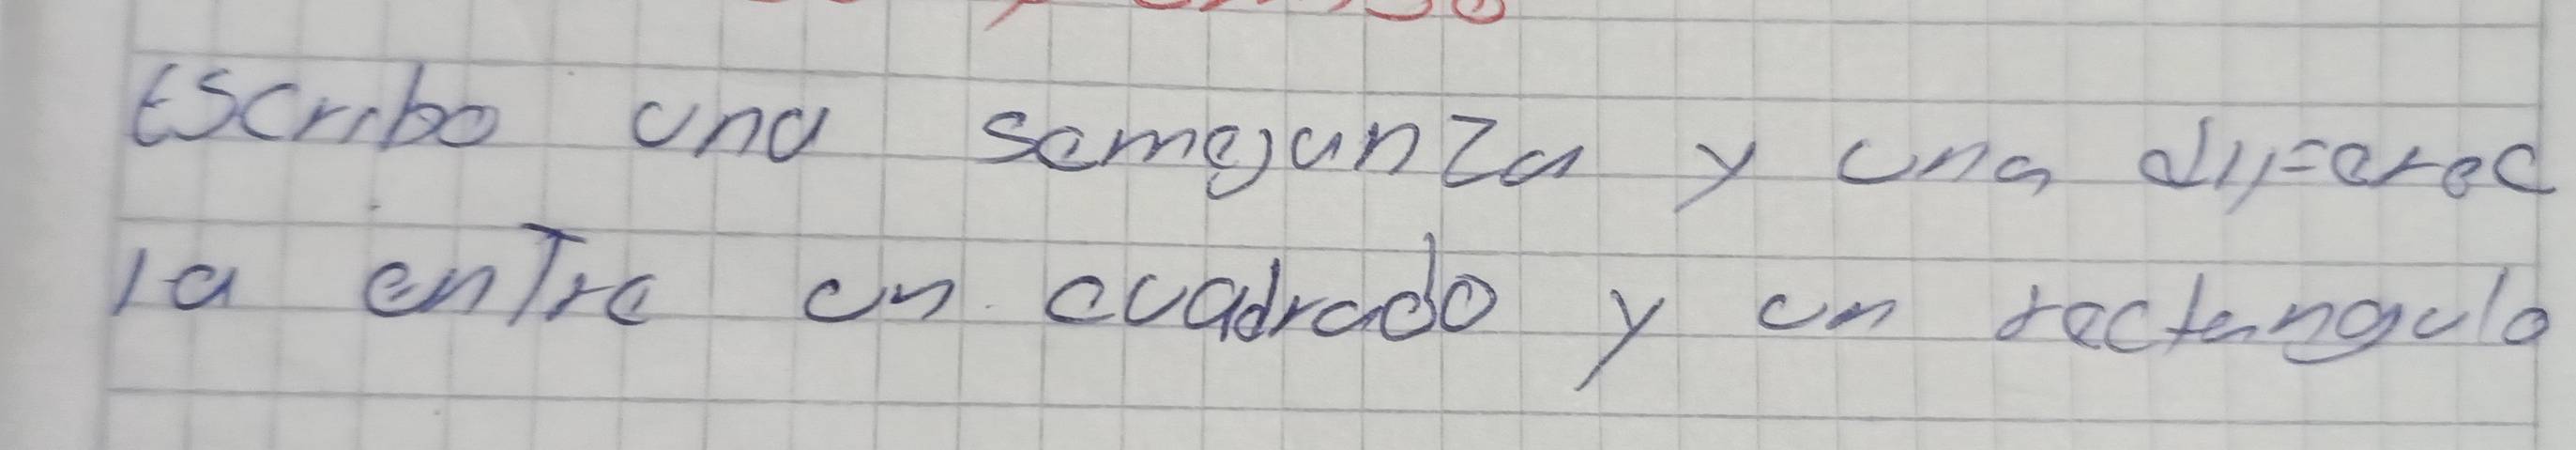 Escribo una semejanza y una diferec
ia entre un cuadrado y un rectangulo